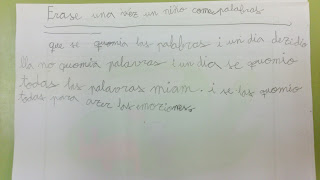 Erase una vez un niño comes palabras
que se quomia las palabras i un dia dezidio
lla no quomia palavras i un dia se quomio
todas las palavras miam. i se las quomio
todas para azer las emozioness